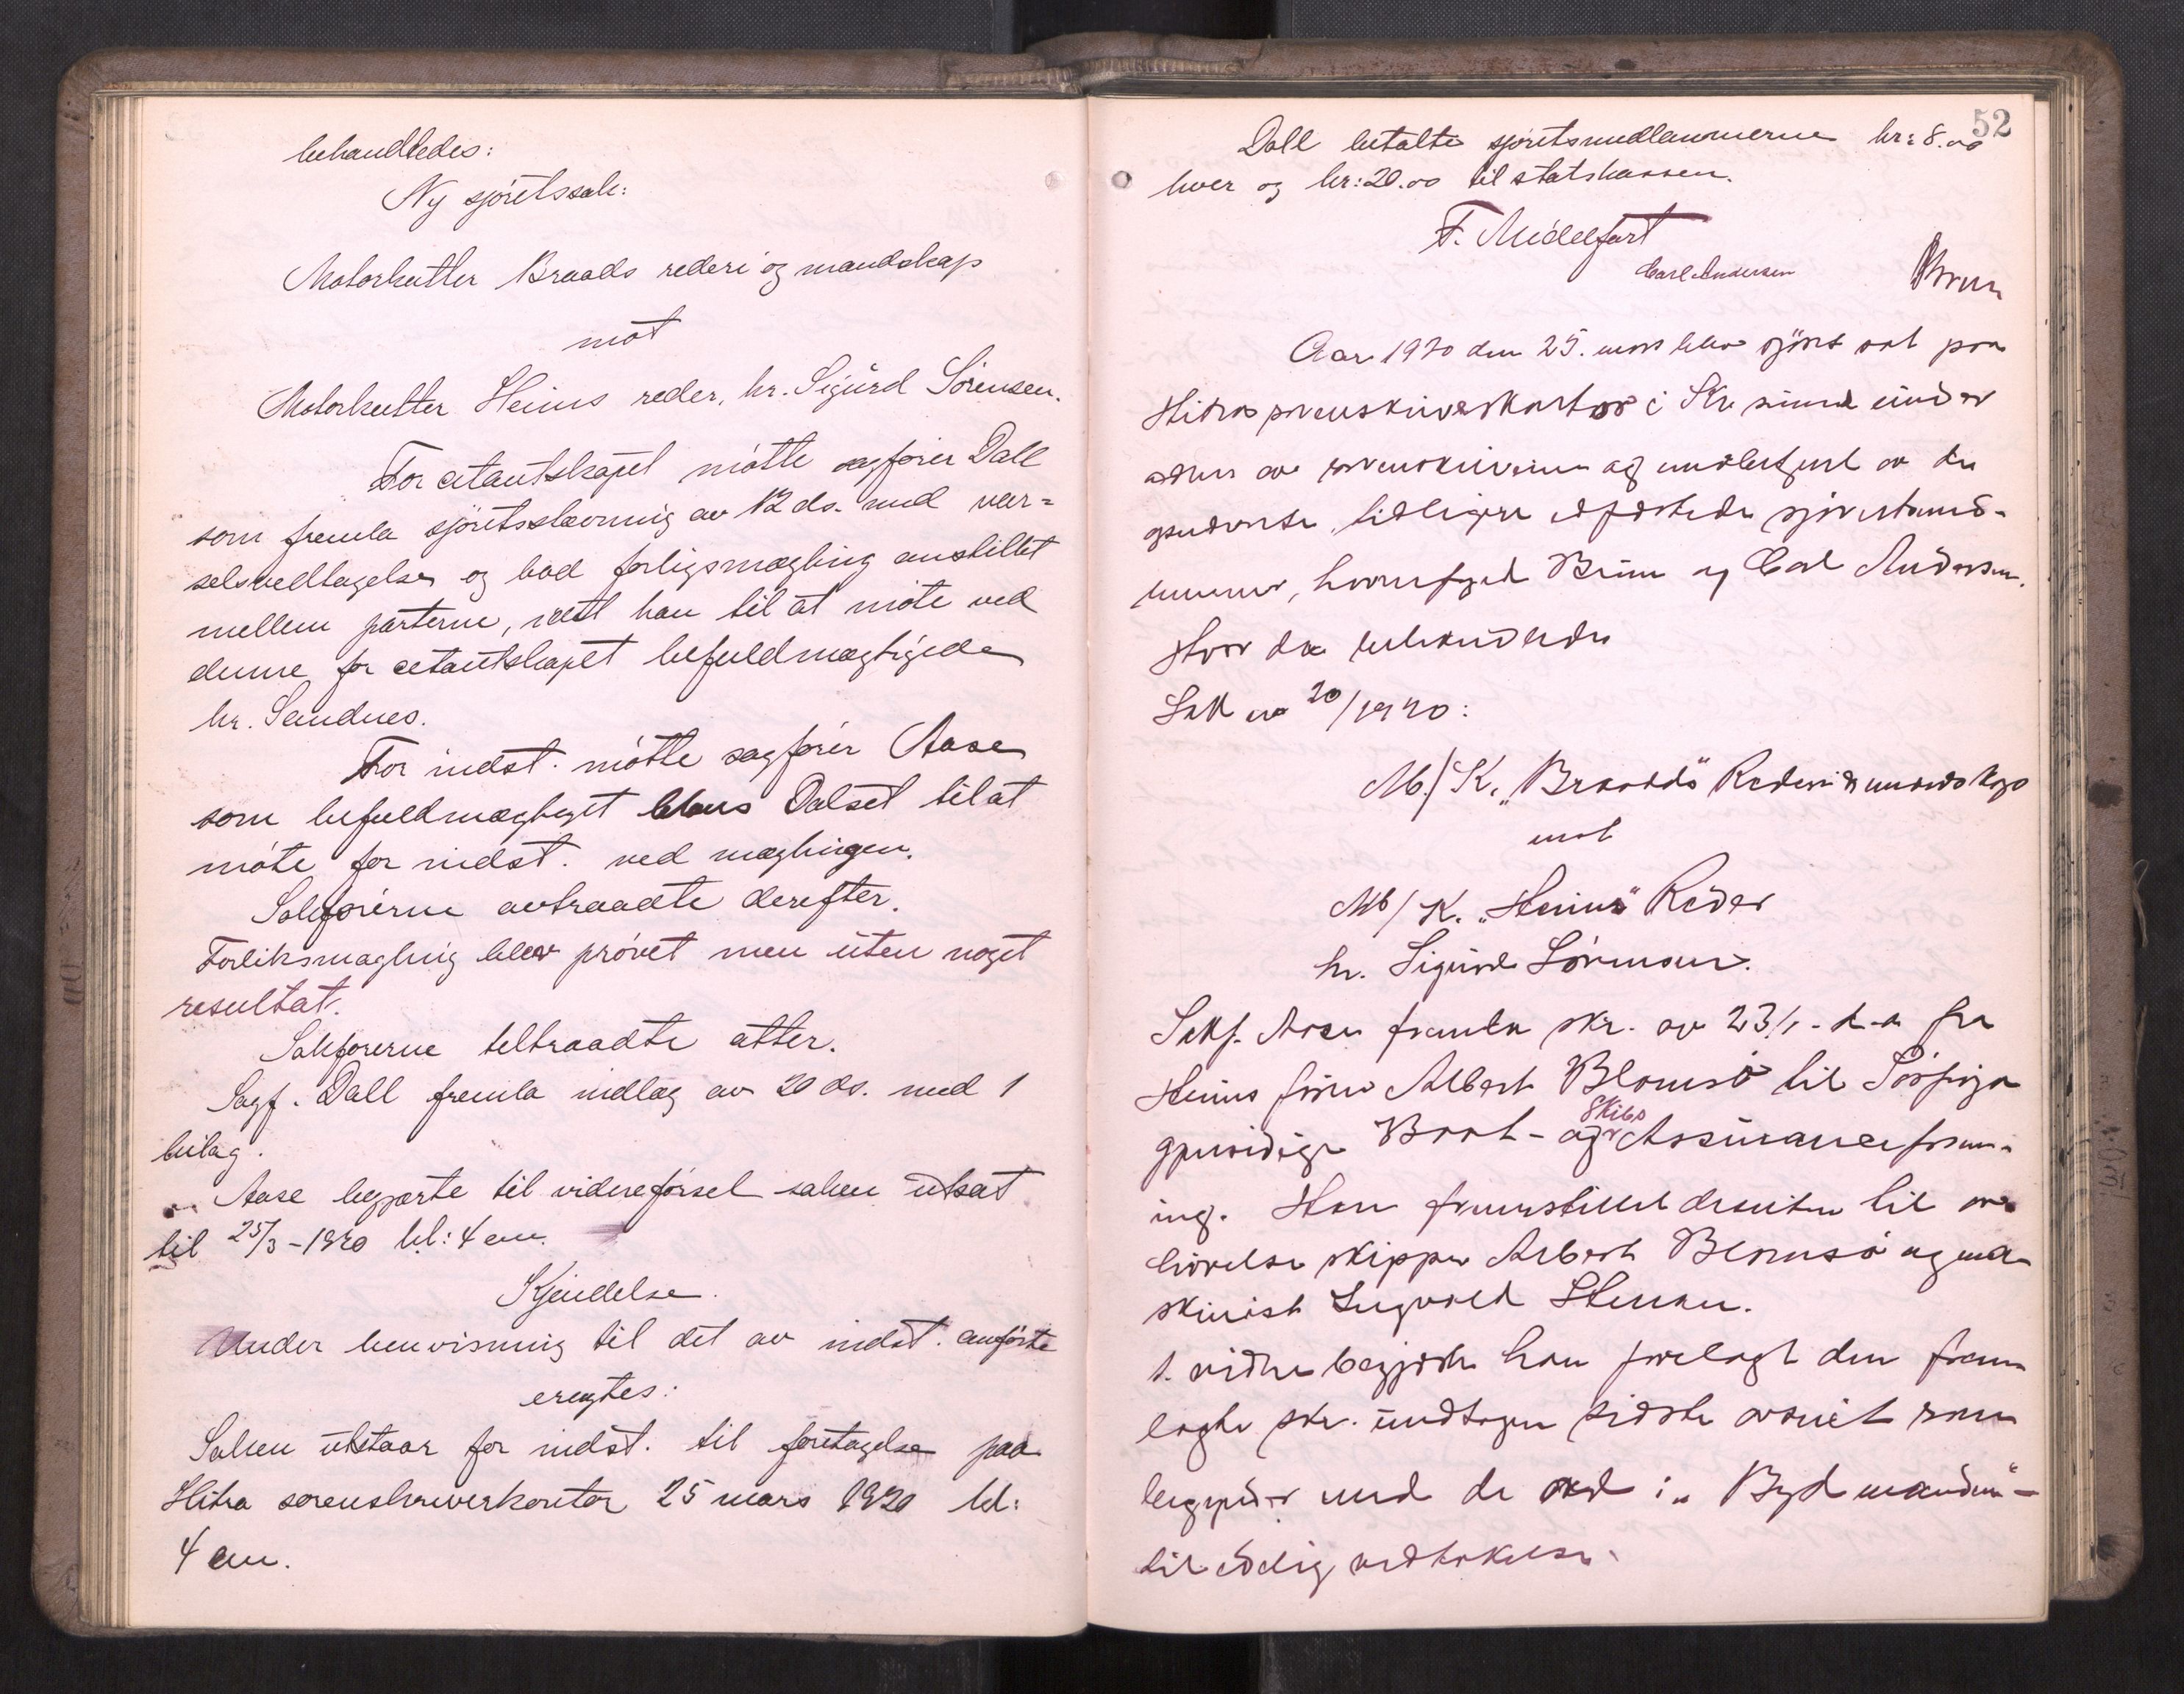 behandledes:
Ny sjöretssak:
Motorkutter Braads rederi og mandskap
mot
Motorkutter Heims reder, hr. Sigurd Sörensen.
For citantskapet mötte sagförer Dall
som fremla sjöretsstevning av 12 ds. med var=
selsvedtagelse og bad forligsmægling anstillet
mellem parterne, idet han til at möte ved
denne for citantskapet befuldmægtigede
hr. Sandnes.
For indst. mötte sagförer Aase
som befuldmægtiget Claus Dalset til at
möte for indst. ved mæglingen.
Sakförerne avtraadte derefter.
Forliksmægling blev prövet men uten noget
resultat.
Sakförerne tiltraadte atter.
Sagf. Dall fremla indlæg av 20 ds. med 1
bilag.
Aase begjærte til videreförsel saken utsat
til 25/3-1920 kl: 4 em.
Kjendelse.
Under henvisning til det av indst. anförte
eragtes:
Saken utstaar for indst. til foretagelse paa
Hitra sorenskriverkontor 25 mars 1920 kl:
4 em.
52
Dall betalte sjöretsmedlemmerne kr: 8.00
hver og kr: 20.00 til statskassen.
F. Midelfart
Carl Andersen Bruun
Aar 1920 den 25. mars blev sjöret sat paa
Hitra sorenskriverkontor i Kr.sund under
av sorenskriveren og av de
tidligere sjöretsmed-
lemmer, Bruun og Carl Andersen.
Hvor da behandledes
Sak nr 20/1920:
M/K. "Braads" Rederi & mandskap
mot
M/K. "Heims" Reder
hr. Sigurd Sörensen.
Sakf. Aasen fremla skr. av 23/1 - d.a. fra
Heims förer Albert Blomsö til
gjensidige Baat- og Skibs Assuranceforen-
ing. Han fremstillet desuten til av-
hörelse skipper Albert Blomsö og ma-
skinist Ingvald Stenen.
1. vidne begjærte han forelagt den frem
lagte skr. undtagen sidste avsnit som
begynder med de ord: "
til edelig vedtakelse.